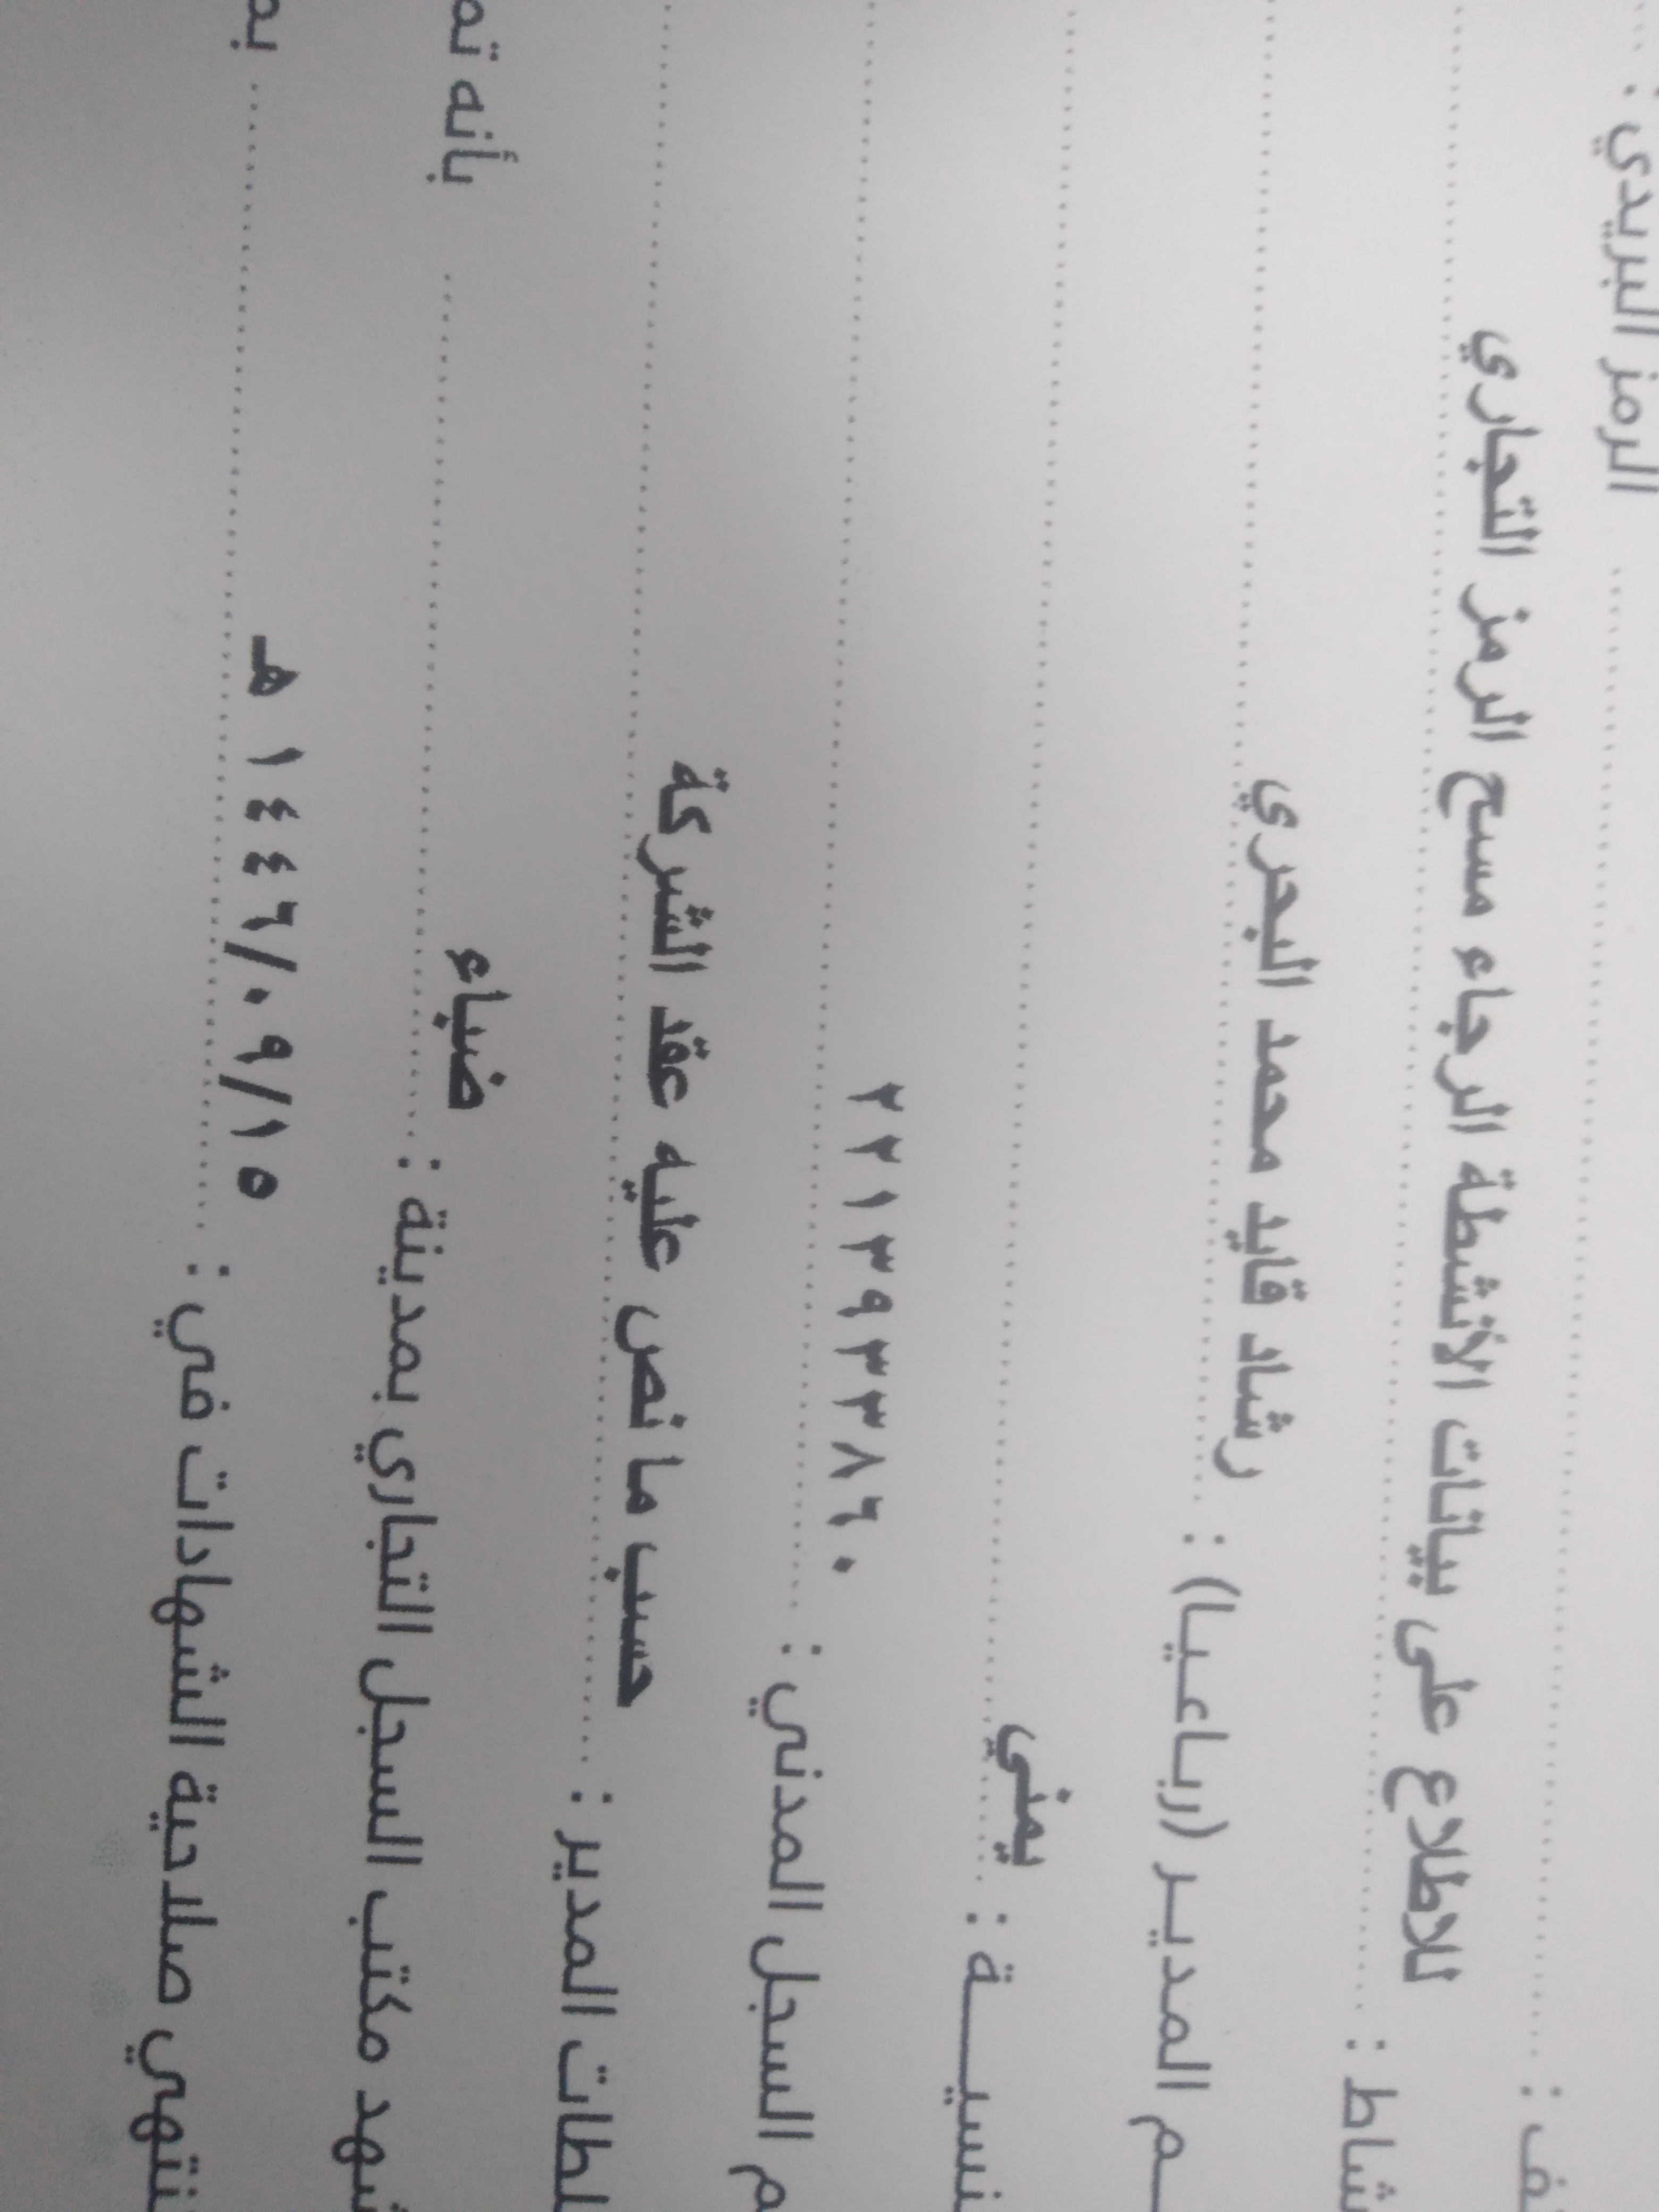 الرمز البريدي :
للاطلاع على بيانات الأنشطة الرجاء مسح الرمز التجاري
رشاد قايد محمد البحري
المديـر (رباعـيـا) :
يمني
السجل المدني : ٢٢١٣٩٣٣٨٦٠
المدير : حسب ما نص عليه عقد الشركة
مكتب السجل التجاري بمدينة : ضباء بأنه
صلاحية الشهادات في : ١٤٤٦/٠٩/١٥ هـ